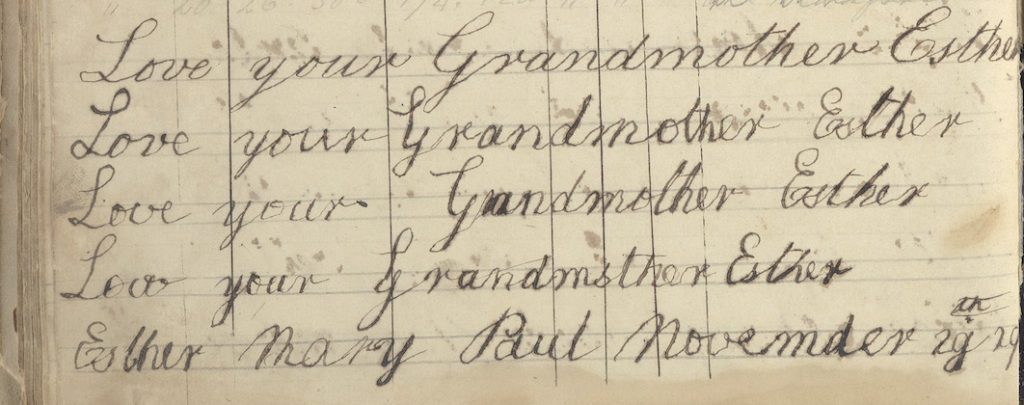 Love your Grandmother Esther
Love your Grandmother Esther
Love your Gnndmother Esther
Love your Grandmother Esther
Esther Mary Paul Novemder 29